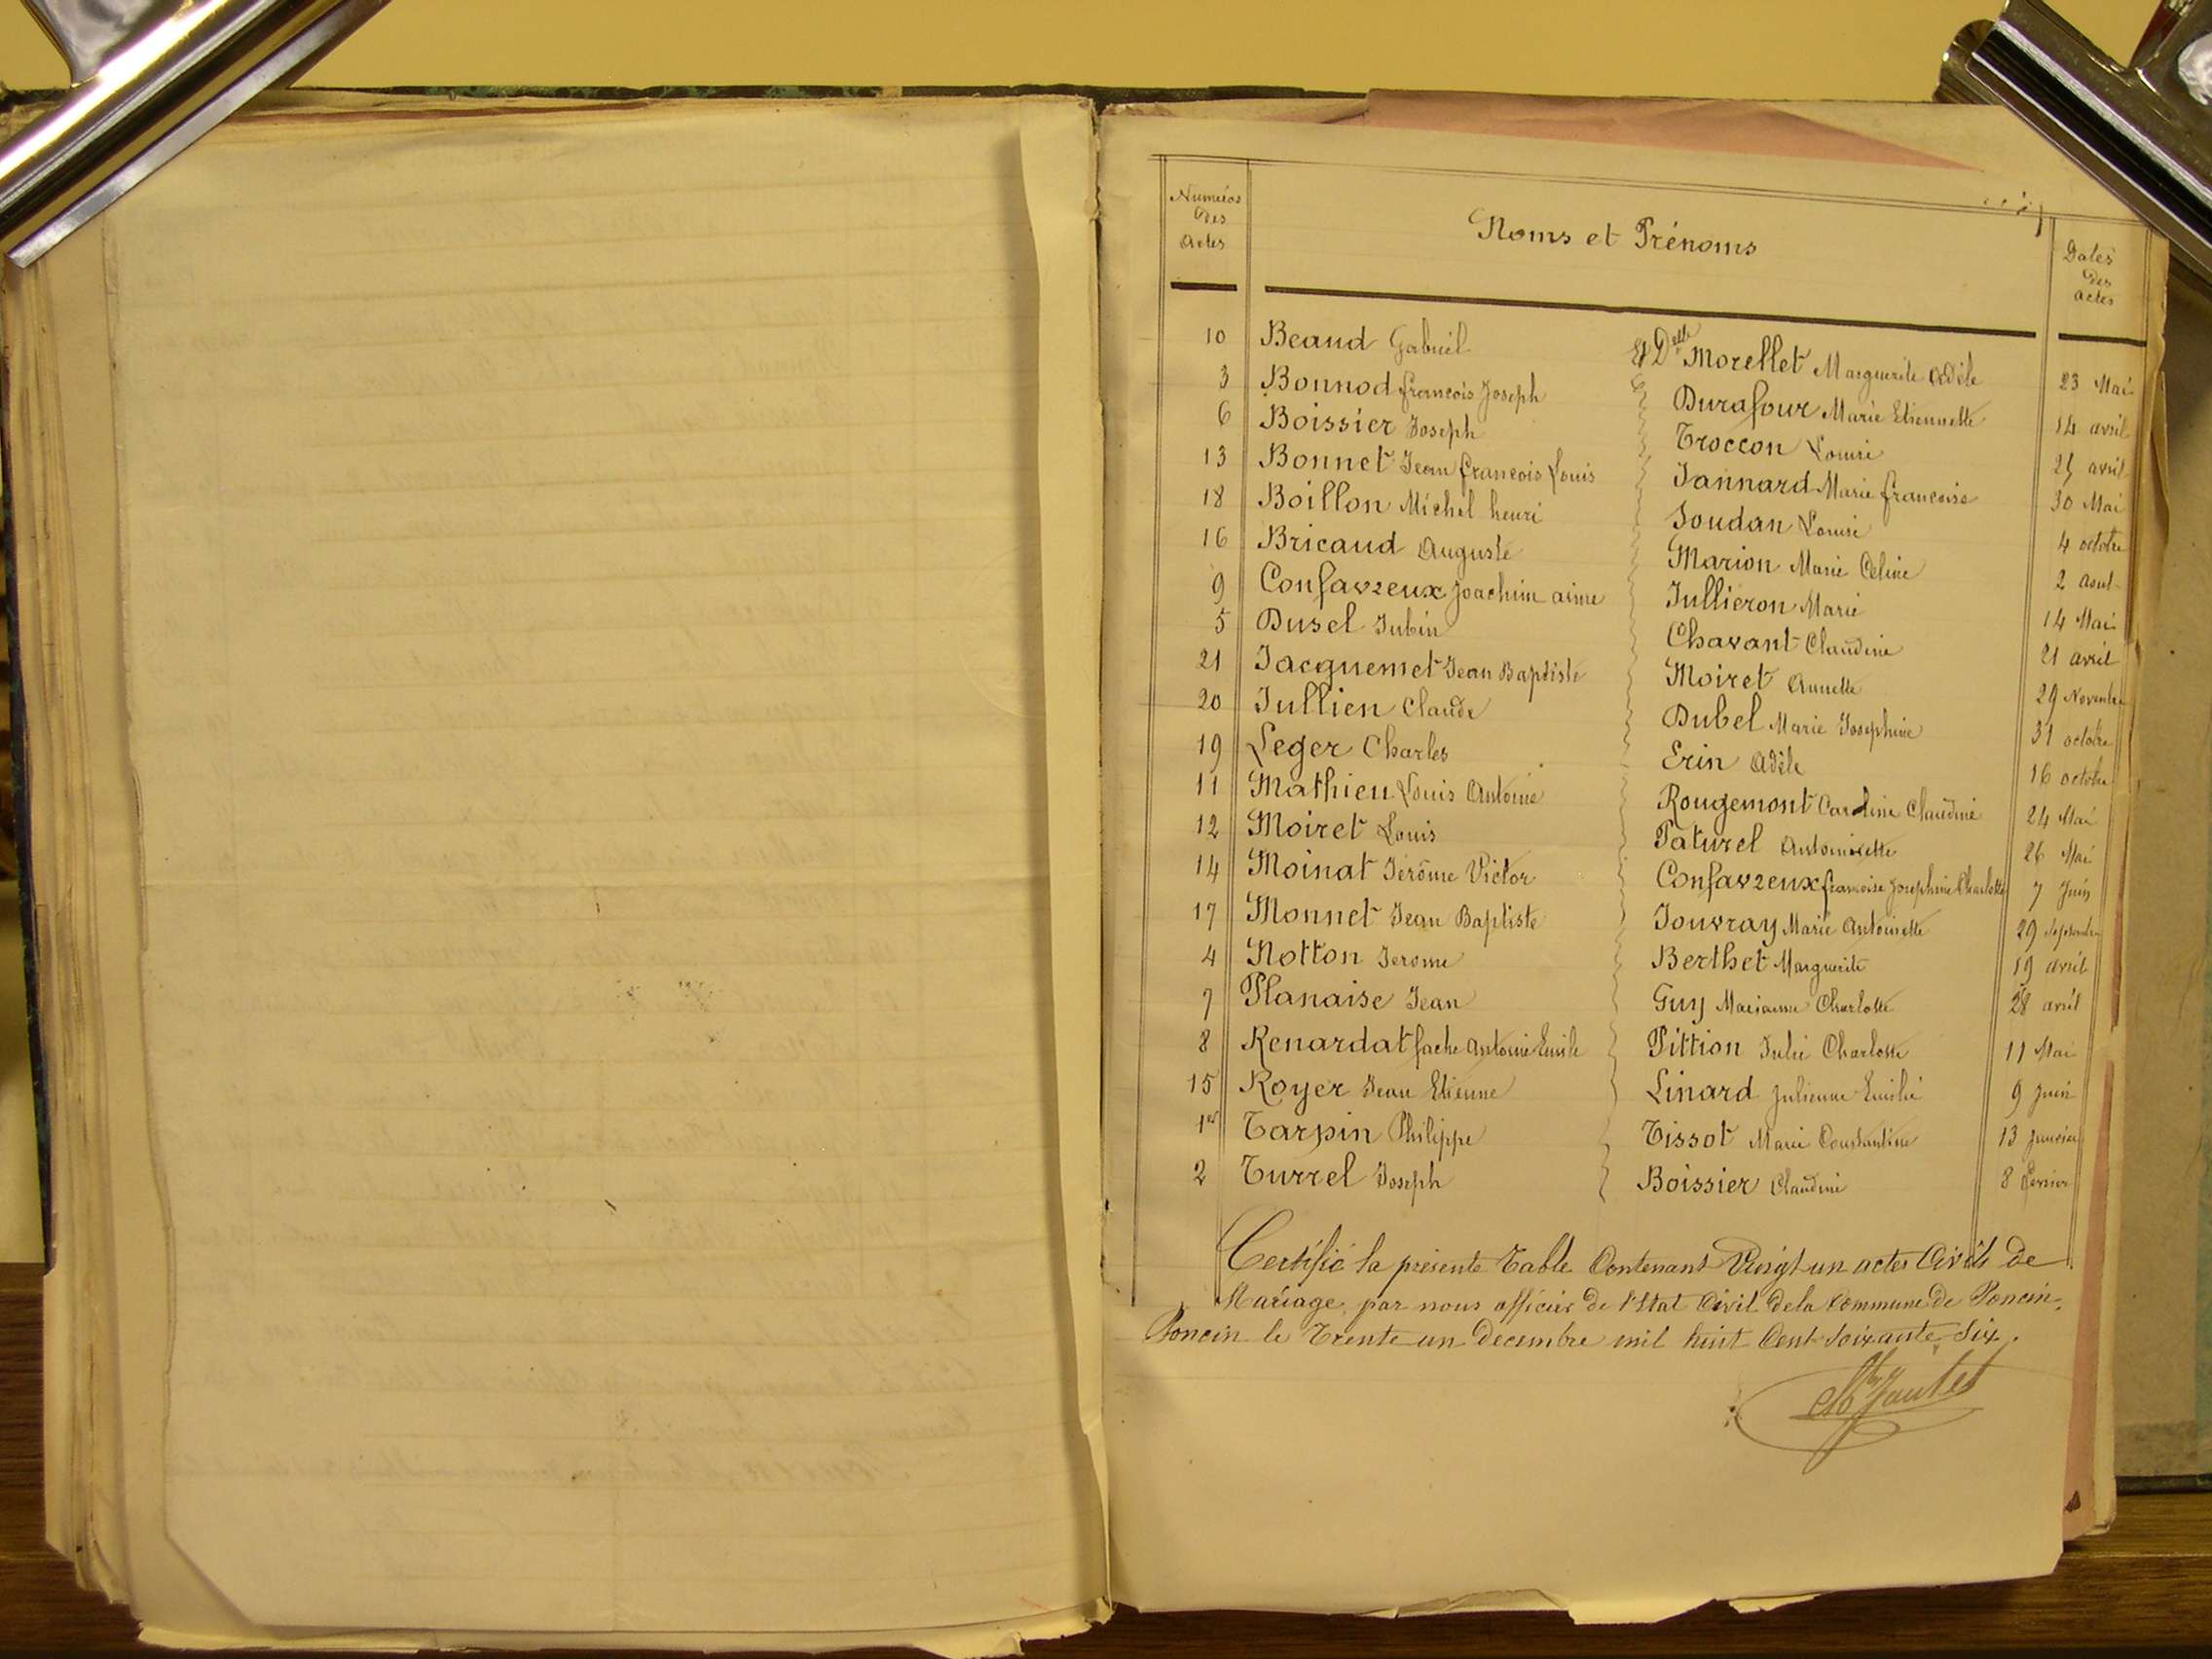 Numéros des Actes
Noms et Prénoms
Dates des actes
10 Beaud Gabriel & Delle Morellet Marguerite Adèle 23 Mai
3 Bonnod francois Joseph Durafour Marie Etiennette 14 avril
6 Boissier Joseph Troccon Louise avril
13 Bonnet Jean francois Louis Jannard Marie francoise 30 Mai
18 Boillon Michel henri Joudan Louise 4 octobre
16 Bricaud Auguste Marion Marie Celine 2 Aout
9 Confavreux Joachim aime Jullieron Marie 14 Mai
5 Dusel Jubin Chavant Claudine 21 avril
21 Jacquemet Jean Baptiste Moiret Annette 29 Novembre
20 Jullien Claude Dubel Marie Josephine 31 octobre
19 Leger Charles Erin Adèle 16 octobre
11 Mathieu Louis Antoine Rougemont Caroline Claudine 24 Mai
12 Moiret Louis Paturel Antoinette 26 Mai
14 Moinat Jérôme Victor Confavreux francoise Josephine Charlotte 7 Juin
17 Monnet Jean Baptiste Jouvray Marie Antoinette 29 Septembre
4 Notton Jerome Berthet Marguerite 19 avril
7 Planaise Jean Guy Marianne Charlotte 28 avril
8 Renardat fache Antoine Emile Pittion Julie Charlotte 11 Mai
15 Royer Jean Etienne Linard Julienne Emilie 9 Juin
1er Tarpin Philippe Tissot Marie Constantine 13 Janvier
2 Turrel Joseph Boissier Claudine 8 fevrier
Certifié la présente Table Contenant Vingt un actes Civils de
Mariage, par nous officier de l'Etat Civil de la Commune de Poncin.
Poncin le Trente un Decembre mil huit Cent Soixante Six.